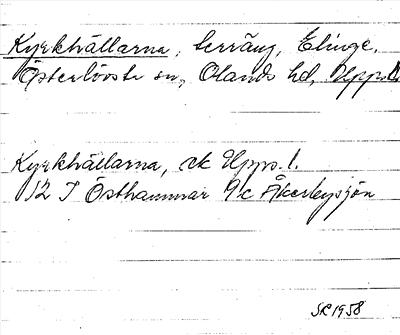 Kyrkhällarna, terräng, Elinge,
Österlövsta sn, Olands hd, Upps.l.
Kyrkhällarna, ek Upps. l.
12 I Östhammar 9/c Åkerbysjön
SR 1958